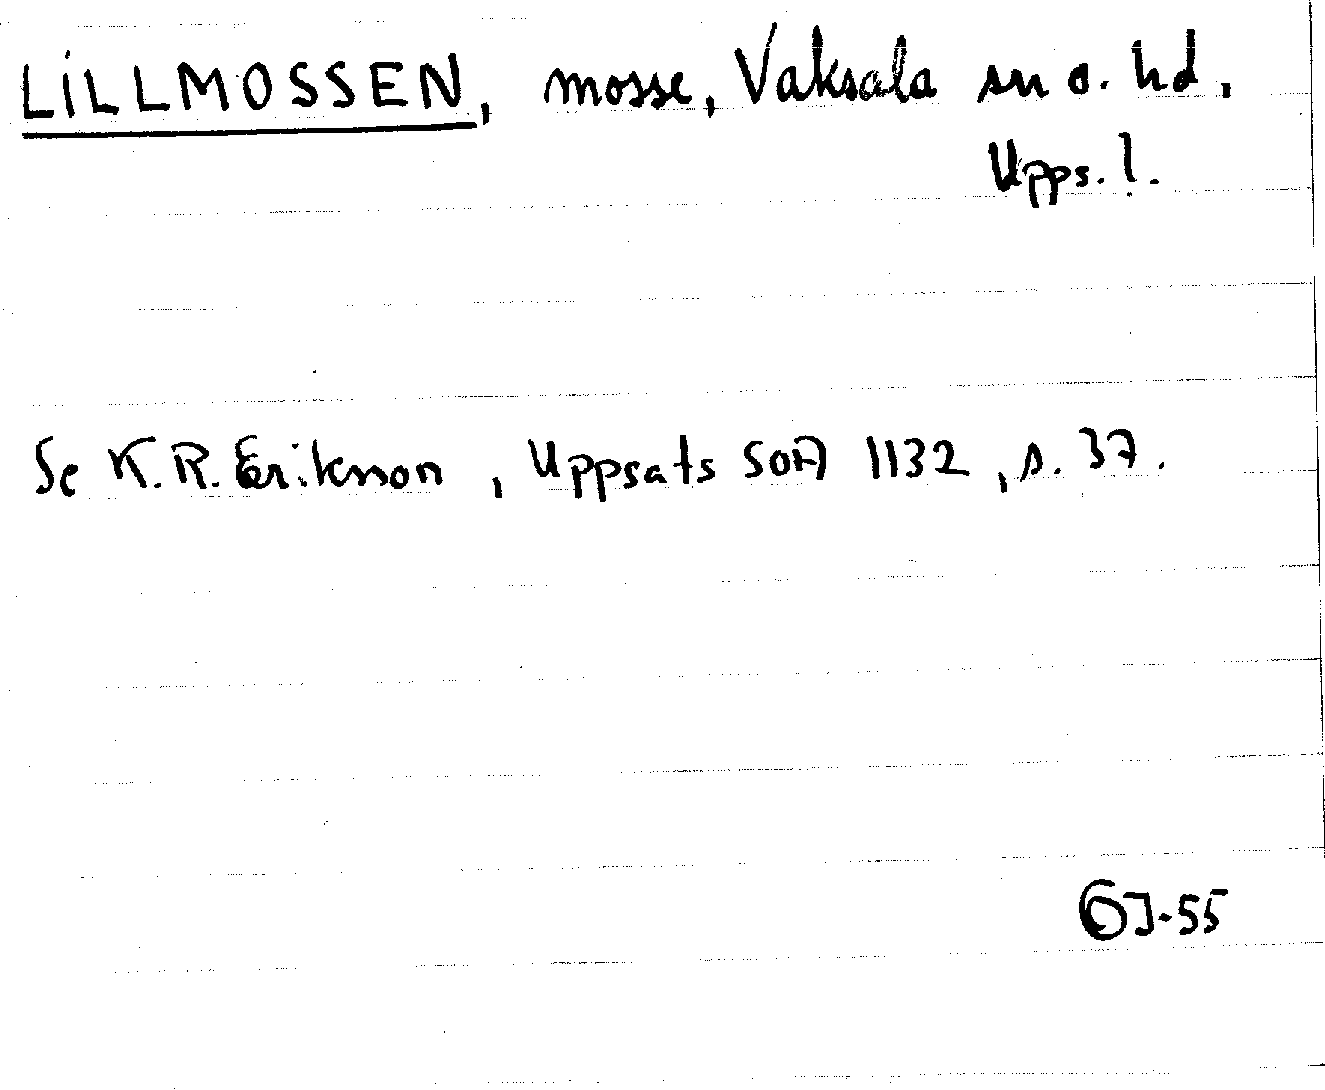 LILLMOSSEN, mosse, Vaksala sn o. hd,
Upps. l.
Se K.R. Erikson, Uppsats SOA 1132, s. 37.
GJ-55